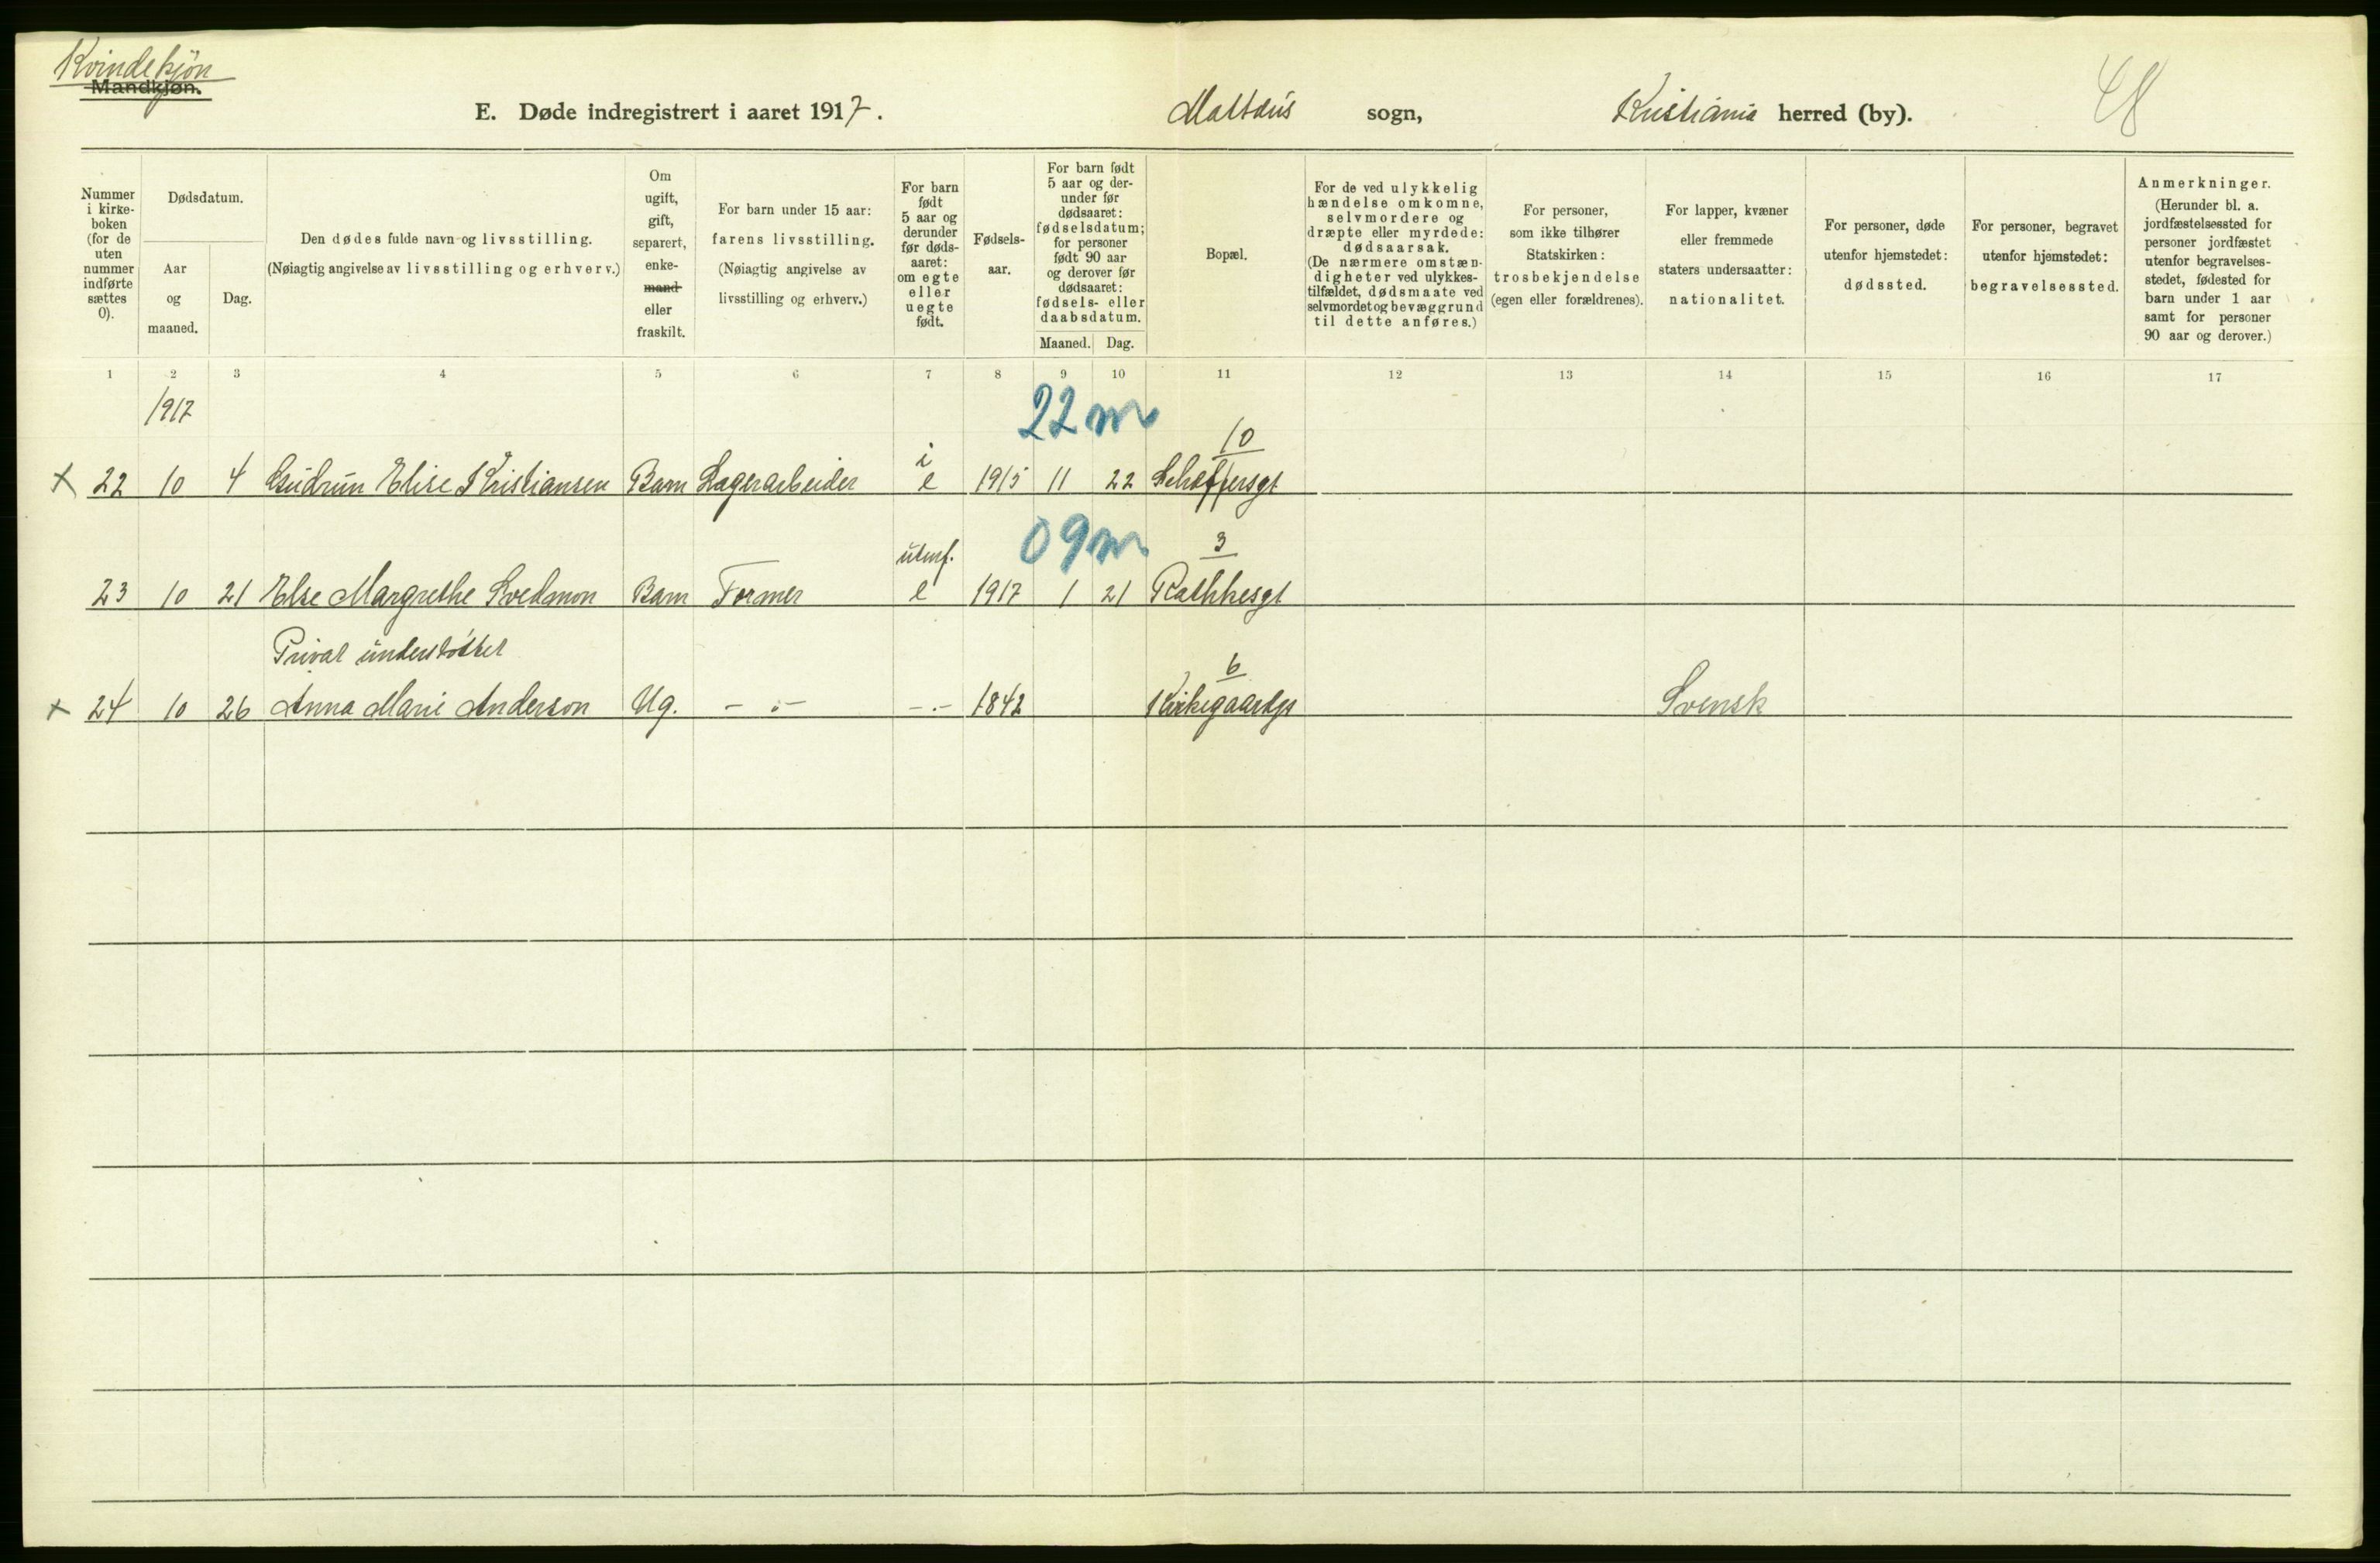 Kvindekjön
Mandkjøn.
E. Døde indregistrert i aaret 1917. Mattæus sogn, Kristiania herred (by). 48
Nummer i kirke-boken (for de uten nummer indførte sættes 0).
Dødsdatum.
Aar og maaned.
Dag.
Den dødes fulde navn og livsstilling.
(Nøiagtig angivelse av livsstilling og erhverv.)
Om ugift, gift, separert, enke-mand eller fraskilt.
For barn under 15 aar: farens livsstilling.
(Nøiagtig angivelse av livsstilling og erhverv.)
For barn født 5 aar og derunder før døds-aaret: om egte eller uegte født.
Fødsels-aar.
For barn født 5 aar og der-under før dødsaaret: fødselsdatum; for personer født 90 aar og derover før dødsaaret: fødsels- eller daabsdatum.
Maaned. Dag.
Bopæl.
For de ved ulykkelig hændelse omkomne, selvmordere og dræpte eller myrdede: dødsaarsak.
(De nærmere omstæn-digheter ved ulykkes-tilfældet, dødsmaate ved selvmordet og bevæggrund til dette anføres.)
For personer, som ikke tilhører Statskirken: trosbekjendelse (egen eller forældrenes).
For lapper, kvæner eller fremmede staters undersaatter: nationalitet.
For personer, døde utenfor hjemstedet: dødssted.
For personer, begravet utenfor hjemstedet: begravelsessted.
Anmerkninger.
(Herunder bl. a. jordfæstelsessted for personer jordfæstet utenfor begravelses-stedet, fødested for barn under 1 aar samt for personer 90 aar og derover.)
1 2 3 4 5 6 7 8 9 10 11 12 13 14 15 16 17
1917 22 m
i 10
x 22 10 4 Gudrun Elise Kristiansen Barn Lagerarbeider e 1915 11 22 Scheffersgt
09 m
3
23 10 21 Else Margrethe Svedmon Barn Former e 1917 1 21 Rathkesgt
Privat understöttet 6
x 24 10 26 Anna Marie Anderson Ug. - . - - . - 1842 Kirkegaardsgt Svensk